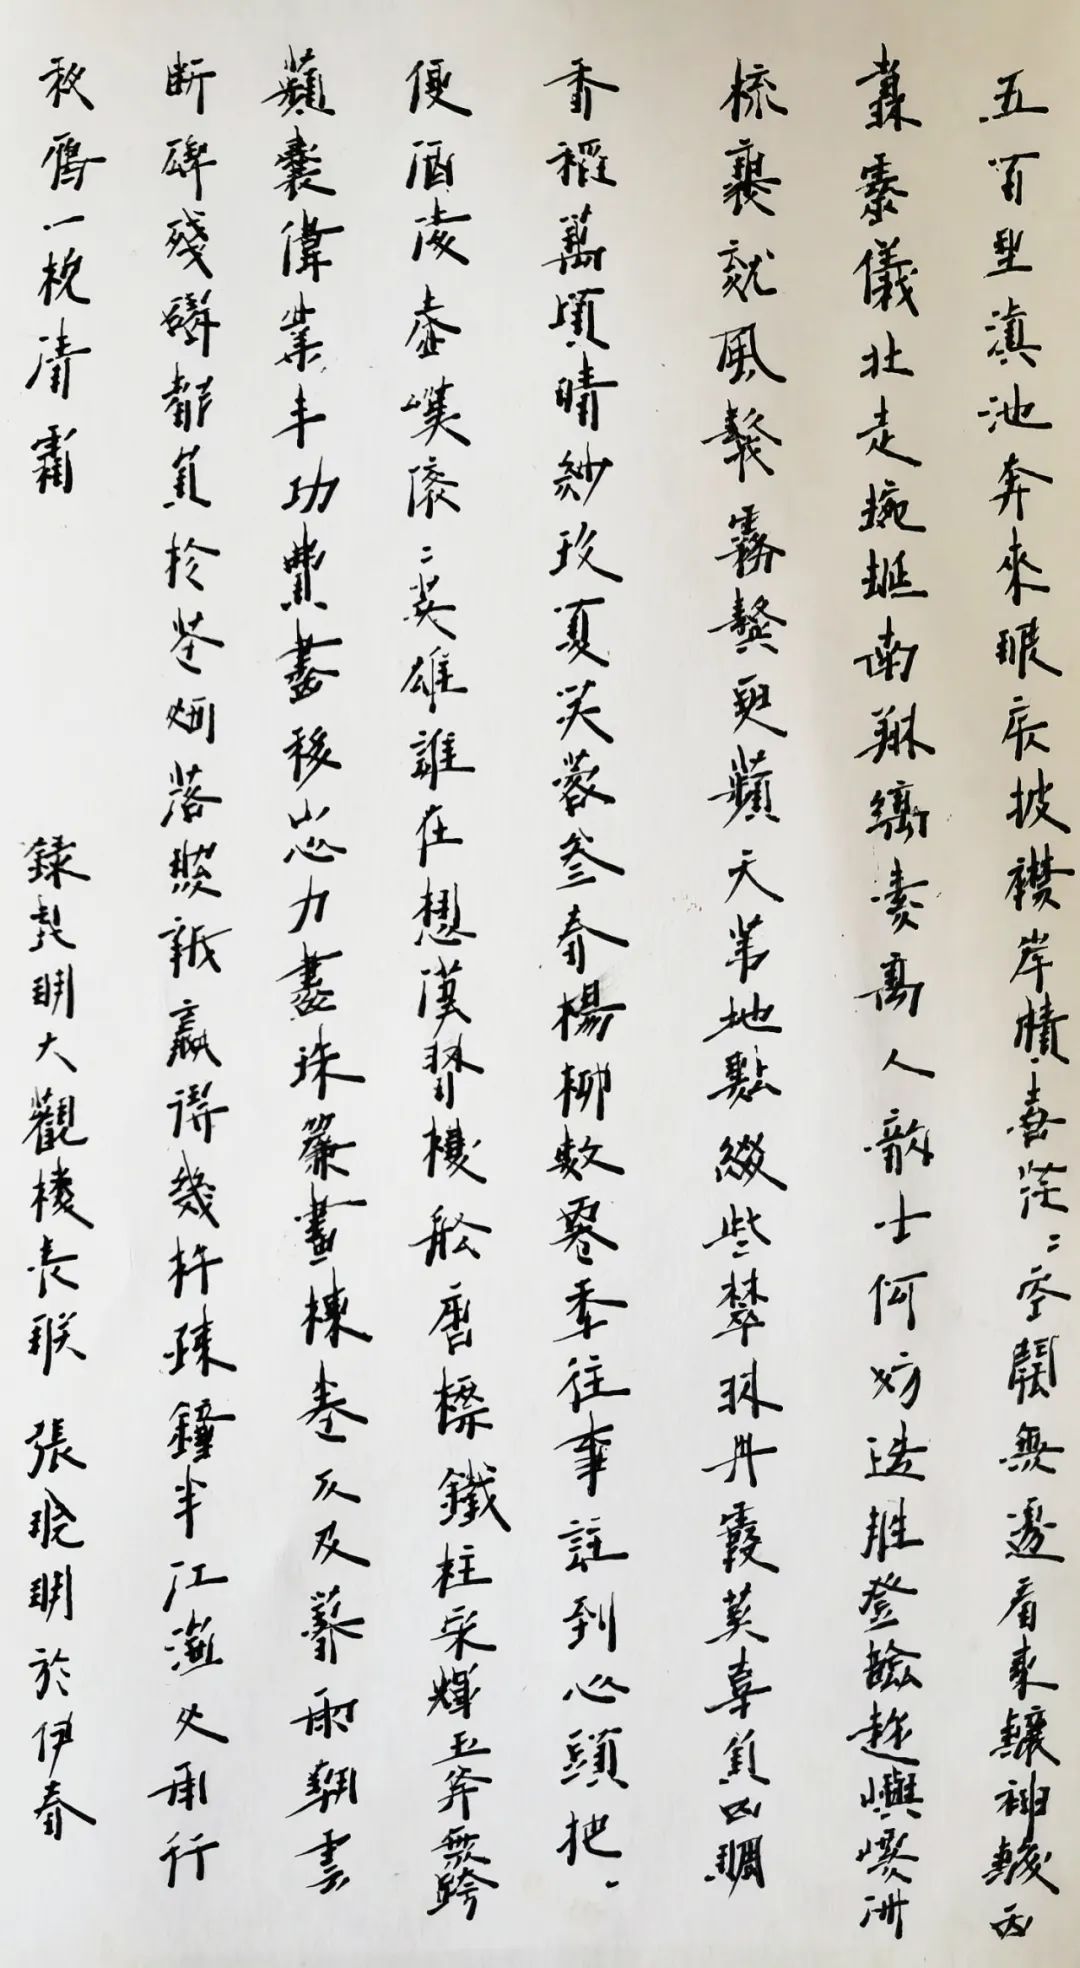 五百里滇池奔來眼底披襟岸幘喜茫〻空闊無邊看東驤神駿西
翥靈儀北走蜿蜒南翔縞素高人韵士何妨选胜登臨趁嶼螺洲
梳裹就風鬟霧鬢更蘋天苇地點綴些翠羽丹霞莫辜負四圍
香稻萬頃晴紗玖夏芙蓉叁春楊柳數零年往事註到心頭把
便酒凌虛嘆滾〻英雄誰在想漢習樓船唐標鐵柱宋揮玉斧無跨
囊偉業丰功費盡移山心力盡珠簾畫棟卷不及暮雨朝雲
断碑殘碣都負於苍烟落照祇贏得幾杵疎鐘半江漁火兩行
秋雁一枕清霜
錄昆明大觀樓長联 張曉明於伊春